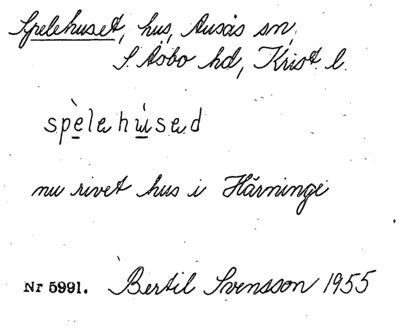 Spelehuset, hus, Ausås sn,
S. Åsbo hd, Krist. l.
spèlehúsed
nu rivet hus i Härninge
Nr 5991. Bertil Svensson 1955